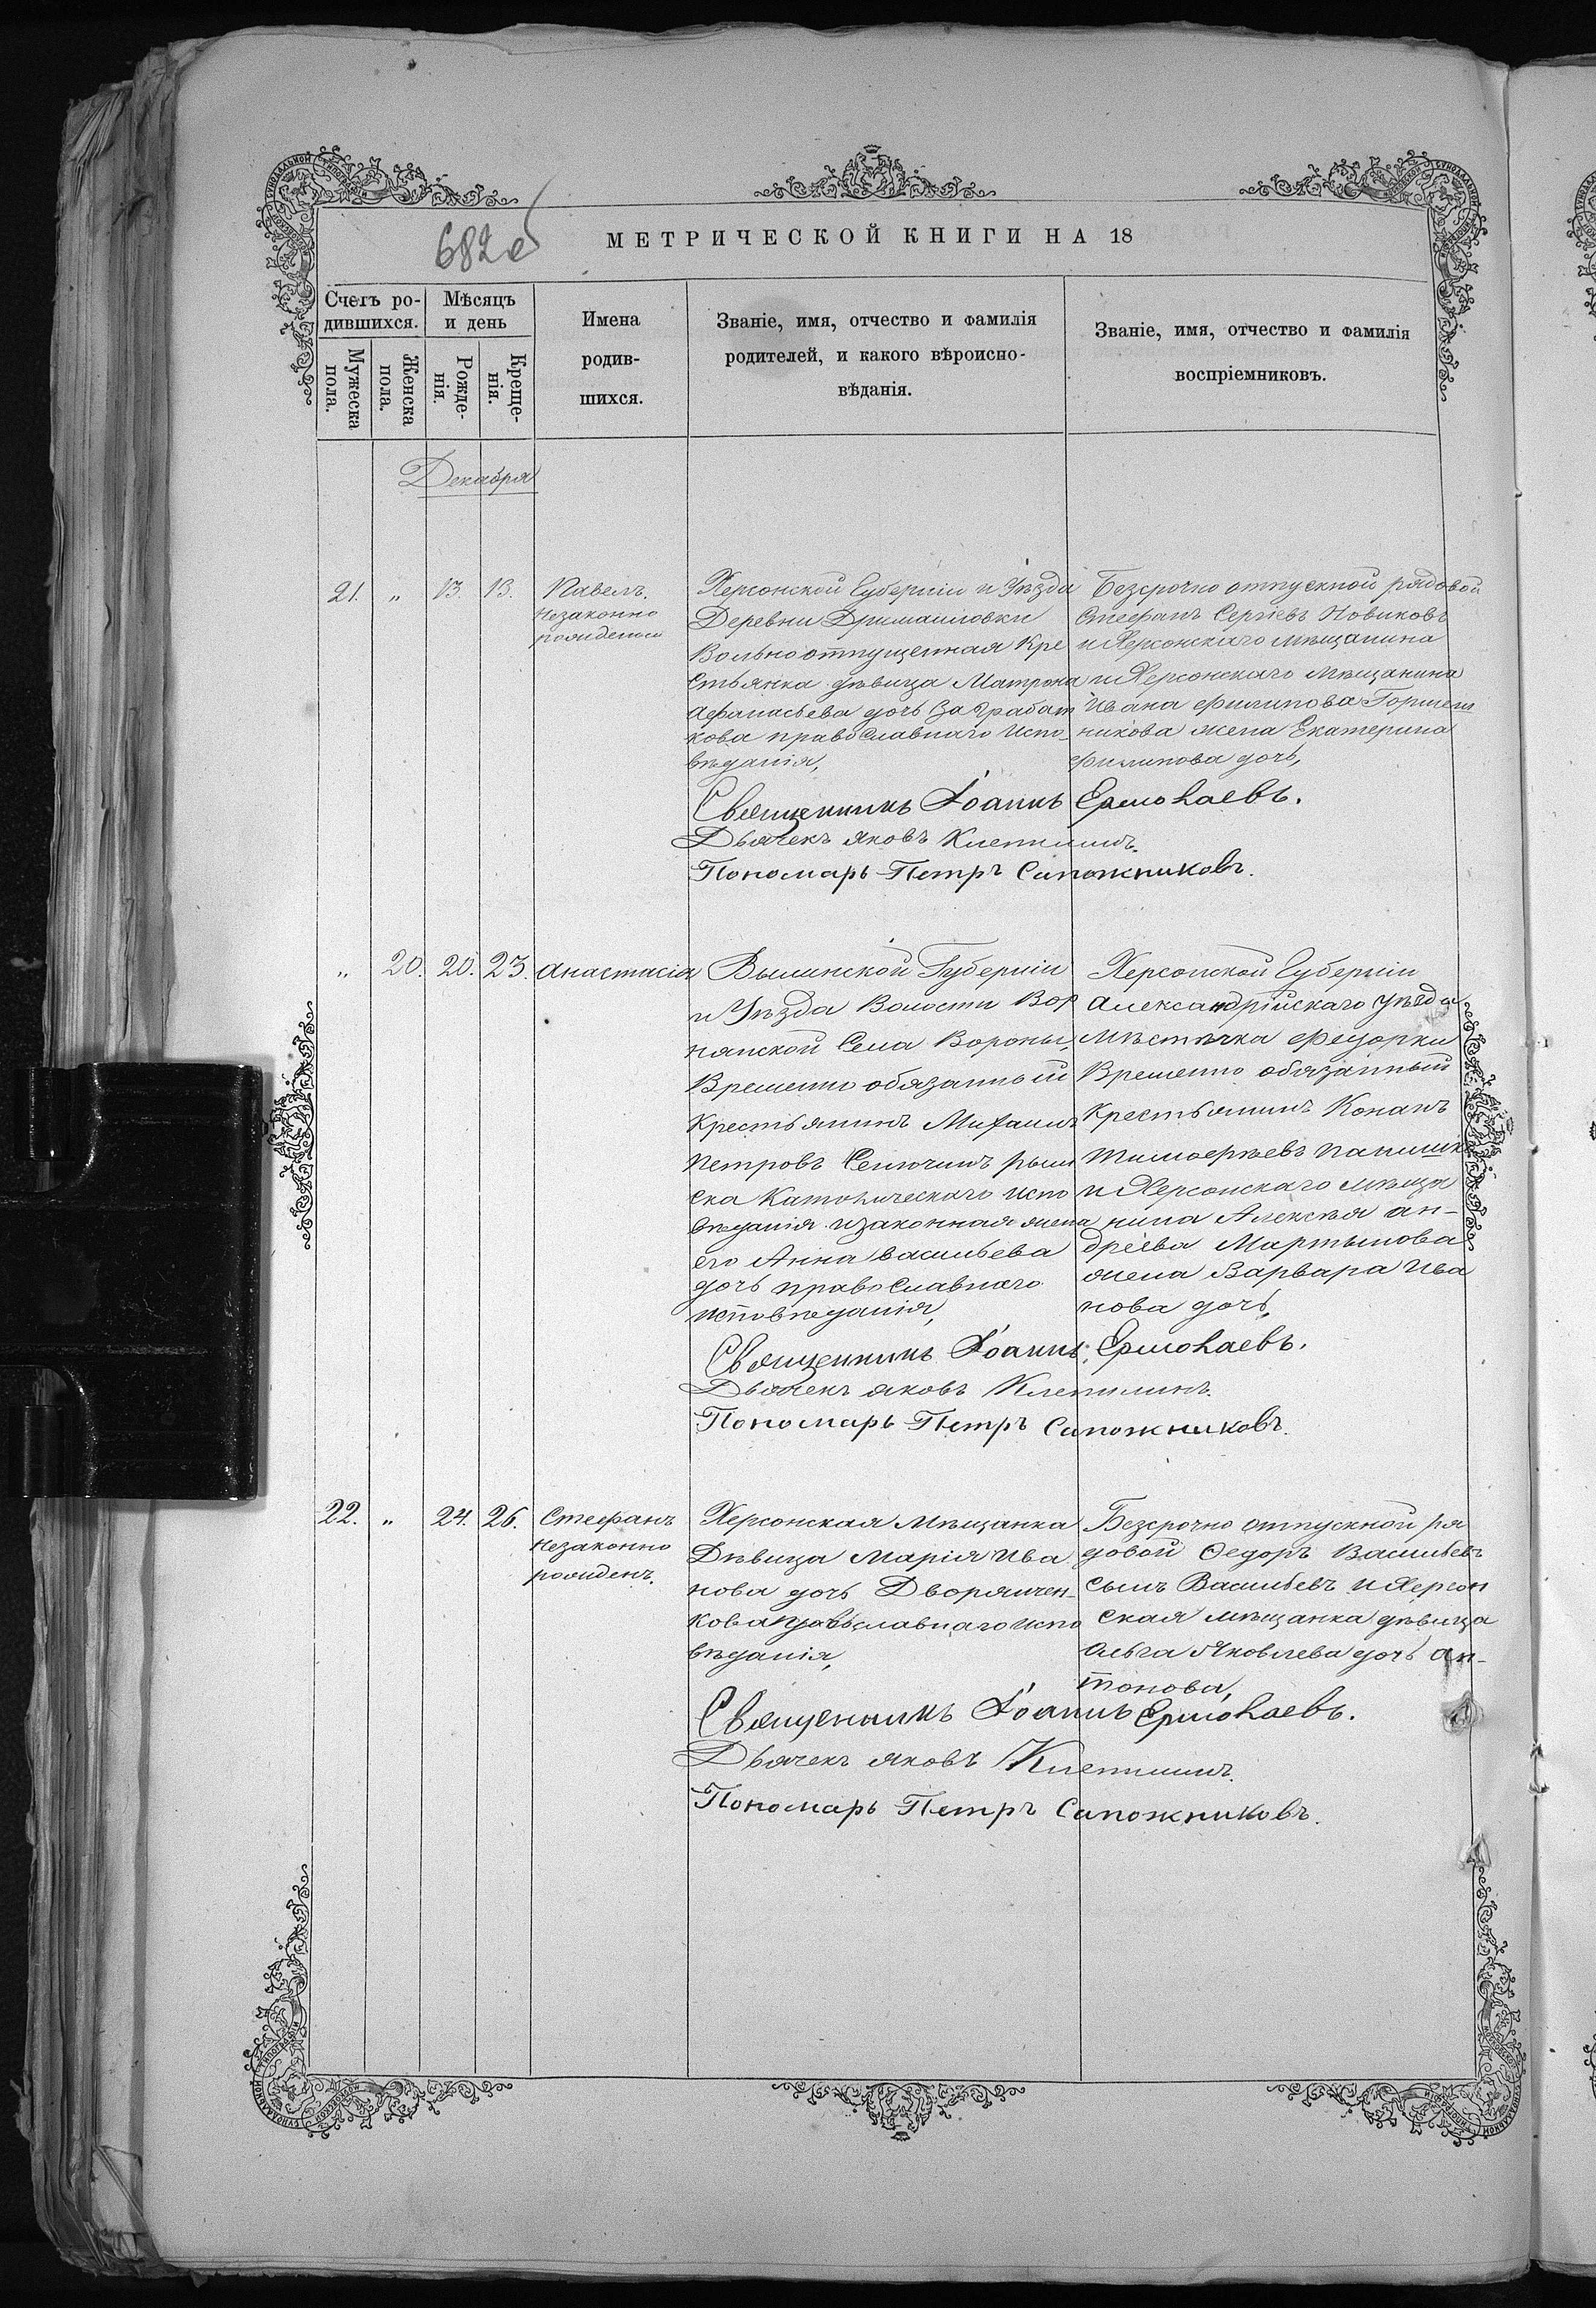 682об
МЕТРИЧЕСКОЙ КНИГИ НА 18
Счетъ ро-
дившихся.
Мужеска
пола.
Женска
пола.
Мѣсяцъ
и день
Рожде-
нія.
Креще-
нія.
Имена
родив-
шихся.
Званіе, имя, отчество и фамилія
родителей, и какого вѣроиспо-
вѣданія.
Званіе, имя, отчество и фамилія
воспріемниковъ.
Декабря
21. „ 13. 13.
Павелъ.
Незаконно
рожденъ
Херсонской Губерніи и Уѣзда
Деревни Дримайловки
Вольноотпущенная Кре
стьянка дѣвица Матрона
Афанасьева дочь
кова православнаго испо-
вѣданія,
Безсрочно отпускной рядовой
Стефанъ Сергѣевъ Новиковъ
и Херсонскаго мѣщанина
и Херсонскаго мѣщанина
Ивана Филипова Горшеш
никова жена Екатерина
Филипова дочь,
Священникъ Іоаннъ Ермолаевъ.
Дьячекъ Яковъ Клепининъ.
Пономарь Петръ Сапожниковъ.
„ 20. 20. 23. Анастасія
Вилинской Губерніи
и Уѣзда Волости Вор
нянской Села Вороны,
Временно обязанный
Крестьянинъ Михаилъ
Петровъ рым
ска Католическаго испо
вѣданія и законная жена
его Анна Васильева
дочь православнаго
исповѣданія,
Херсонской Губерніи
Александрійскаго уѣзда
Мѣстѣчка Федорки
Временно обязанный
Крестьянинъ Конанъ
Тимофѣевъ
и Херсонскаго мѣща
нина Алексѣя Ан-
дреева Мартынова
жена Варвара Ива
нова дочь,
Священникъ Іоаннъ Ермолаевъ.
Дьячекъ Яковъ Клепининъ.
Пономарь Петръ Сапожниковъ.
22. „ 24. 26.
Стефанъ
Незаконно
рожденъ.
Херсонская Мѣщанка
Дѣвица Марія Ива
нова дочь Дворянчен-
кова православнаго испо
вѣданія,
Безсрочно отпускной ря
довой Федоръ Васильевъ
сынъ Васильевъ и Херсон
ская мѣщанка дѣвица
Ольга Яковлева дочь Ан-
тонова,
Священникъ Іоаннъ Ермолаевъ.
Дьячекъ Яковъ Клепининъ.
Пономарь Петръ Сапожниковъ.